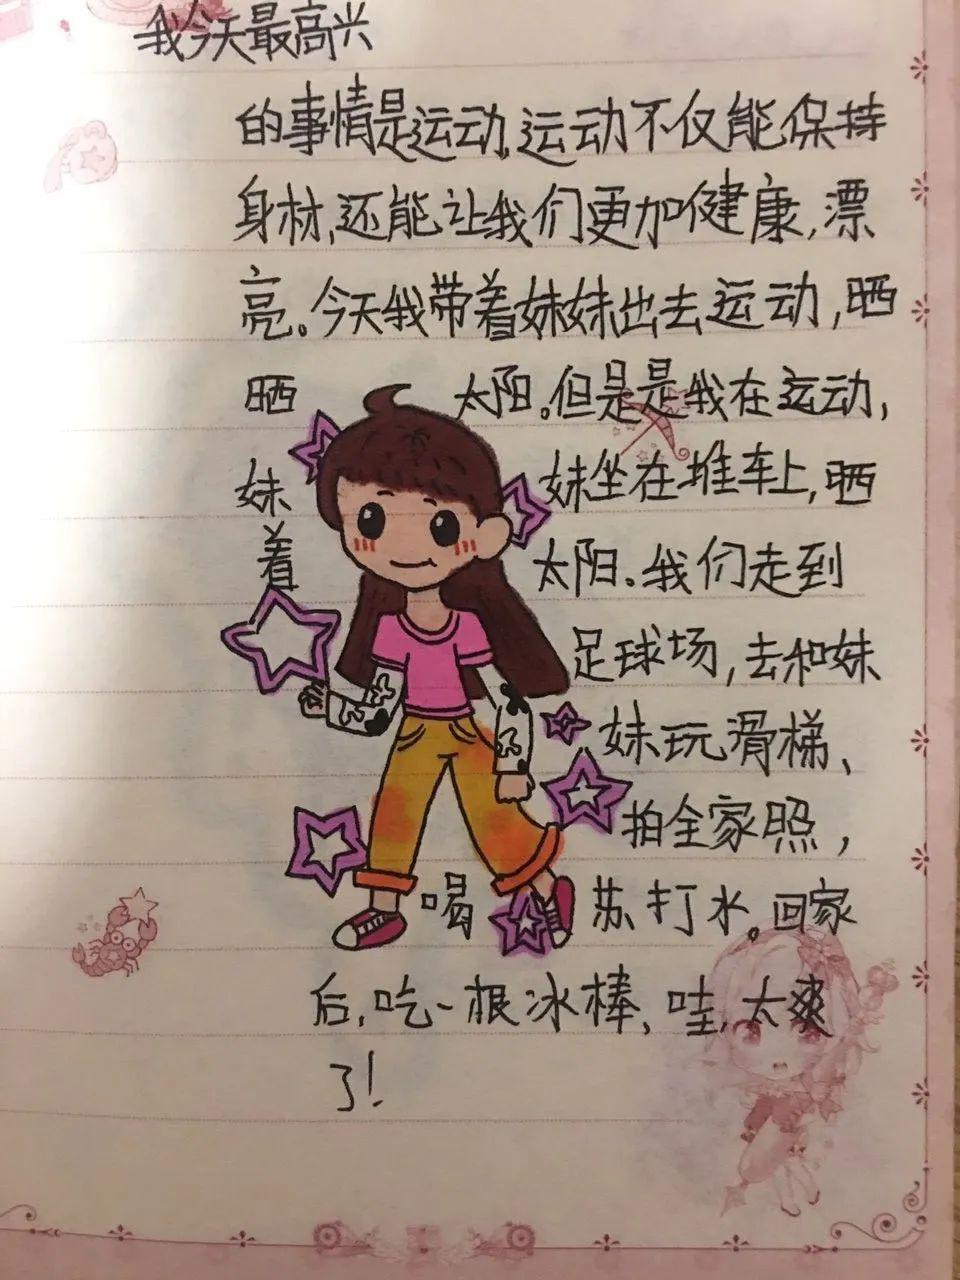 我今天最高兴
的事情是运动,运动不仅能保持
身材,还能让我们更加健康,漂
亮。今天我带着妹妹出去运动,晒
晒太阳。但是是我在运动,
妹妹坐在堆车上,晒
着太阳。我们走到
足球场,去和妹
妹玩滑梯、
拍全家照,
喝苏打水。回家
后,吃一根冰棒,哇,太爽
了!